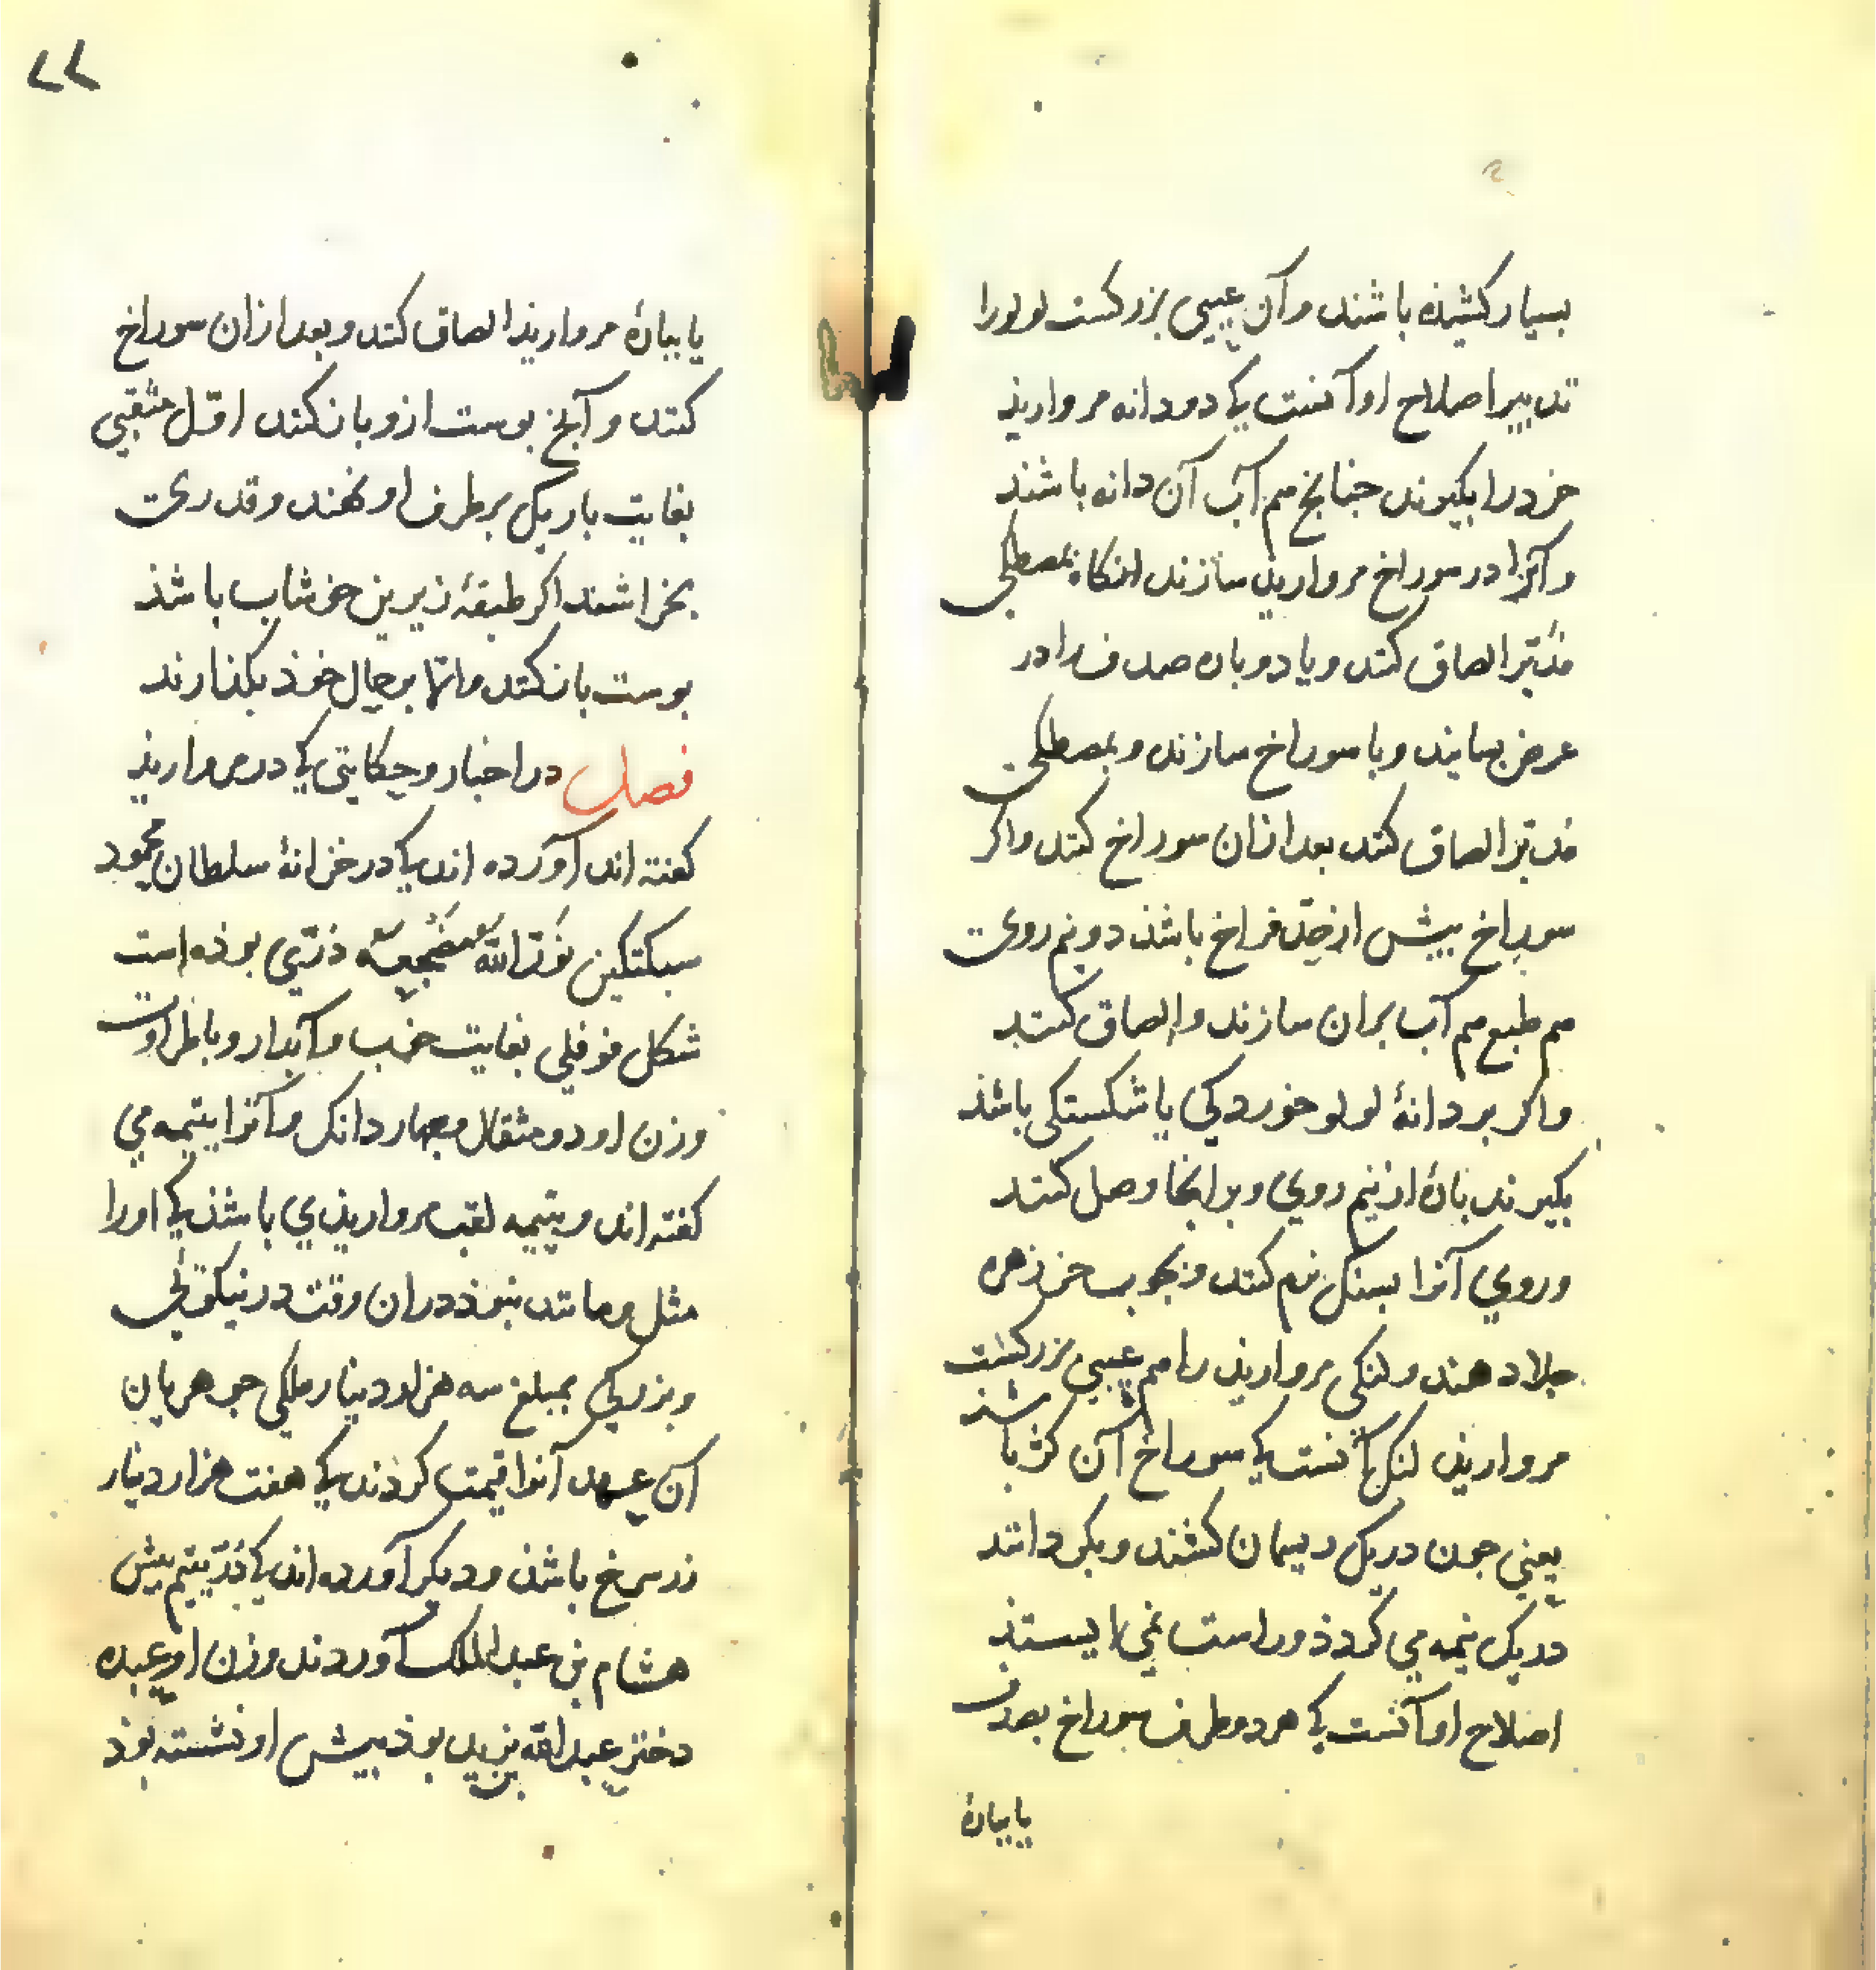 بسیار کشیذه باشند و آن عیبی بزرکست لولو را
تدبیر اصلاح او آنست کی دو دانه مروارید
خرد را بکیرند جنانج هم آب آن دانه باشند
و آنرا در سوراخ مروارید سازند انکاه بمصطکی
مدبّر الصاق کنند و یا دو باره صدف را در
عرض بسایند و با سوراخ سازند و بمصطکی
مدبّر الصاق کنند بعد ازان سوراخ کنند و اکر
سوراخ بیش از حدّ فراخ باشذ دو نیم روی
هم طبع هم آب بران سازند و الصاق کنند
و اکر بر دانهٔ لولو خوردکی یا شکستکی باشذ
بکیرند بارهٔ از نیم رویی و بر انجا وصل کنند
و روی آنرا بسنک نرم کنند و بجوب خر زهره
جلا دهند و لنکی مروارید را هم عیبی بزرکست
مروارید لنک آنست کی سوراخ آن کژ باشد
یعنی جون در یک ریسمان کشند و بکردانند
در یک نیمه می کردذ و راست نمی ایستذ
اصلاح او آنست کی هر دو طرف سوراخ بصدف
یا ببارهٔ
۷۷
یا ببارهٔ مروارید الصاق کنند و بعد ازان سوراخ
کنند و آنج بوست ازو باز کنند اوّل مثقبی
بغایت باریک بر طرف او نهند و قدری
بخراشند اکر طبقهٔ زیرین خوشاب باشذ
بوست باز کنند و الّا بر حال خوذ بکذارند
فصل در اخبار و حکایتی کی در مروارید
کفته اند آورده اند کی در خزانهٔ سلطان محمود
سبکتکین نوّر الله مضجعه درّی بوذه است
شکل فوفلی بغایت خوب و آبدار و با طراوت
وزن او دو مثقال و چهار دانک و آنرا یتیمه می
کفته اند و یتیمه لقب مرواریذی باشذ کی او را
مثل و مانند نبوذ دران وقت در نیکویی
و بزرکی بمبلغ سه هزار دینار ملکی جوهریان
آن عهد آنرا قیمت کردند کی هفت هزار دینار
زر سرخ باشذ و دیکر آورده اند کی درّ یتیم بیش
هشام بن عبد الملک آوردند وزن او و عبده
دختر عبد الله بن یزید بوذ بیش او نشسته بوذ